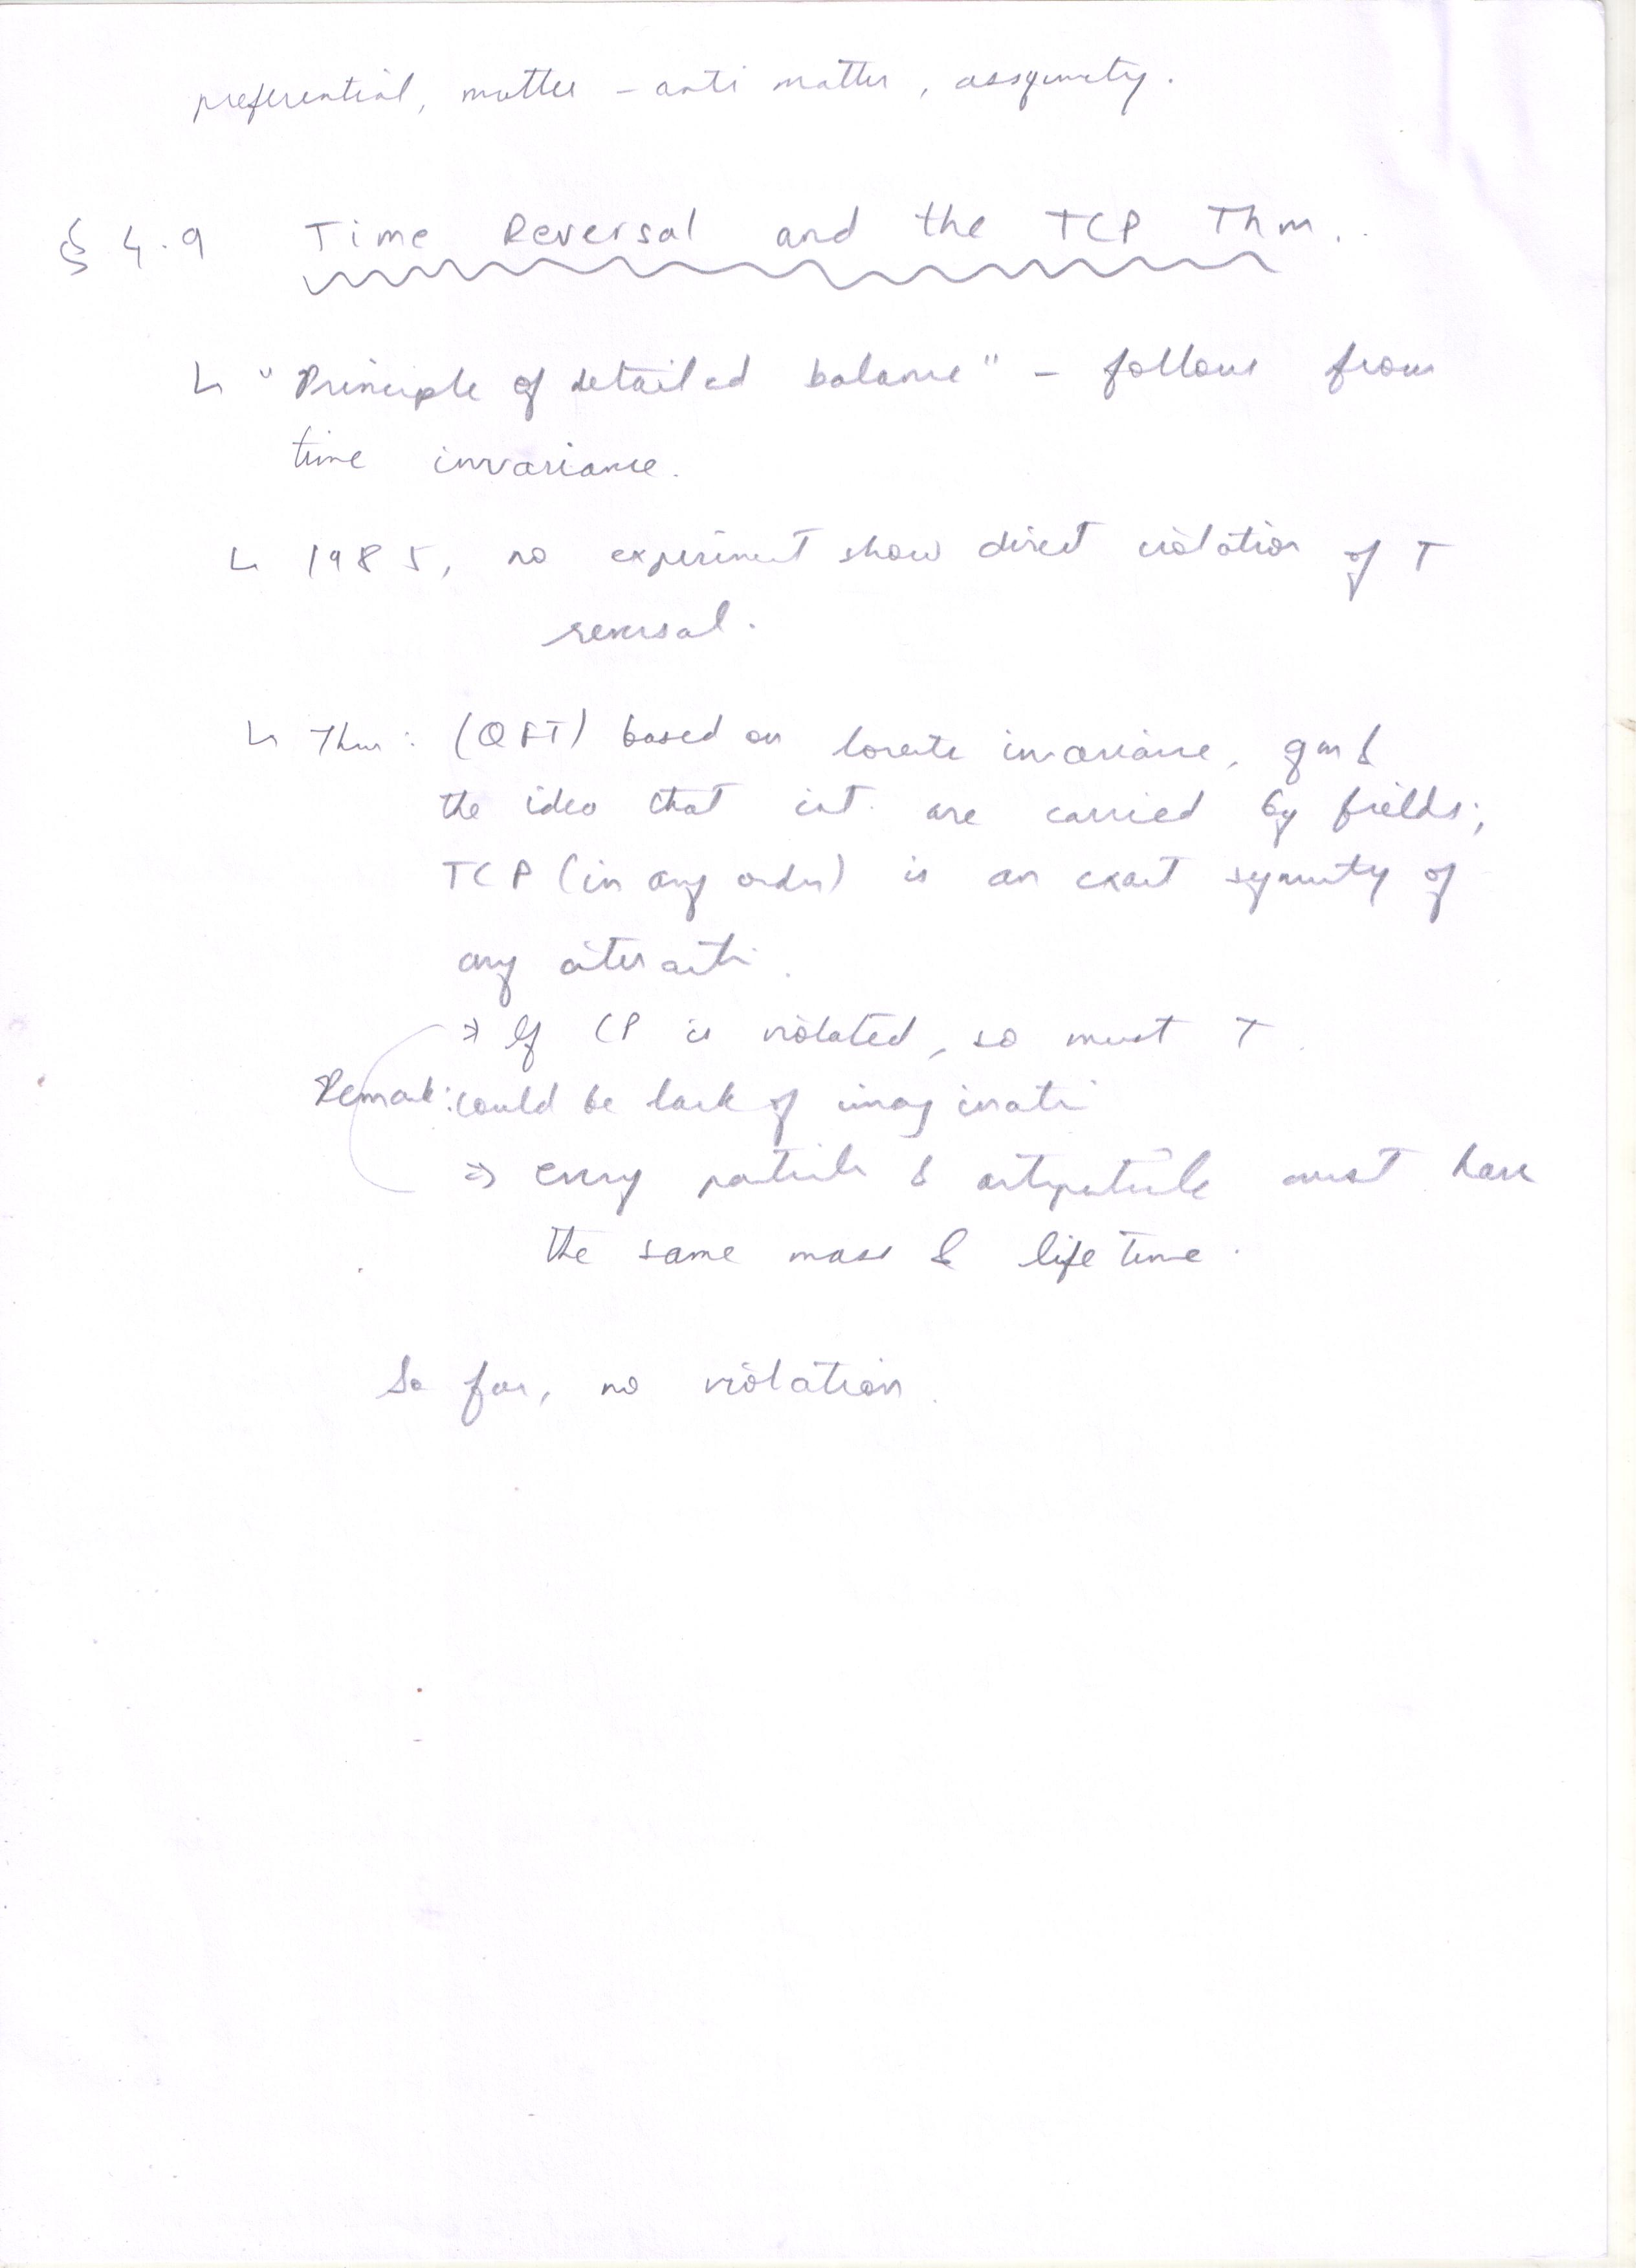 preferential, matter - anti matter, assymety.
§ 4.9 Time Reversal and the TCP Thm.
↳ "Principle of detailed balance" - follows from
time invariance.
↳ 1985, no experiment show direct violation of T
reversal.
↳ Thm: (QFT) based on lorentz invariance, qm &
the idea that int. are carried by fields;
TCP (in any order) is an exact symmety of
any interacti.
⇒ If CP is violated, so must T.
Remark: could be lack of imaginati
⇒ every particle & antiparticle must have
the same mass & life time.
So far, no violation.